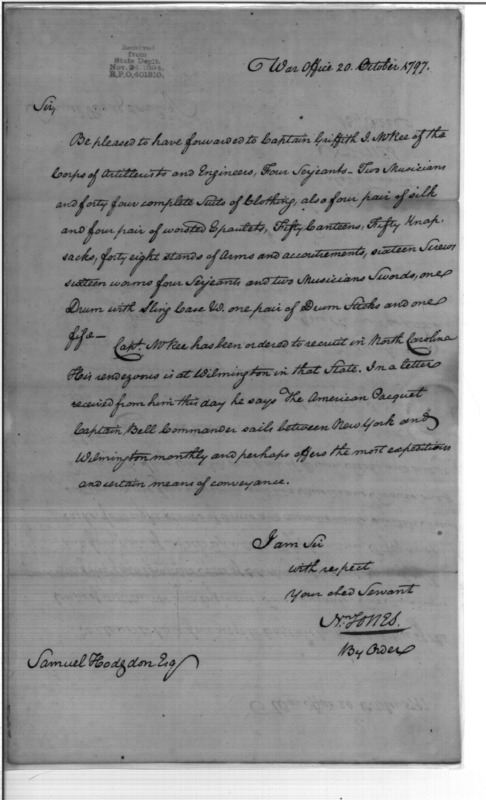 Received
from
State Dept.
Nov. 24, 1894.
R.P.O. 401810.
War Office 20. October 1797.
Sir,
Be pleased to have forwarded to Captain Griffith J. McKee of the
Corps of Artillerists and Engineers, Four Serjeants - Two Musicians
and forty four complete Suits of Clothing, also four pair of silk
and four pair of worsted Epaulets, Fifty Canteens, Fifty Knap-
sacks, forty eight stands of Arms and accoutrements, sixteen Screws
sixteen worms four Serjeants and two Musicians Swords, one
Drum with Sling Case &c. one pair of Drum Sticks and one
fife—
Capt. McKee has been ordered to recruit in North Carolina
His rendezvous is at Wilmington in that State. In a letter
received from him this day he says The American Pacquet
Captain Bell Commander sails between New York and
Wilmington monthly and perhaps offers the most expeditious
and certain means of conveyance.
I am Sir
with respect
Your obed Servant
Nn. JONES.
By Order
Samuel Hodgdon Esq